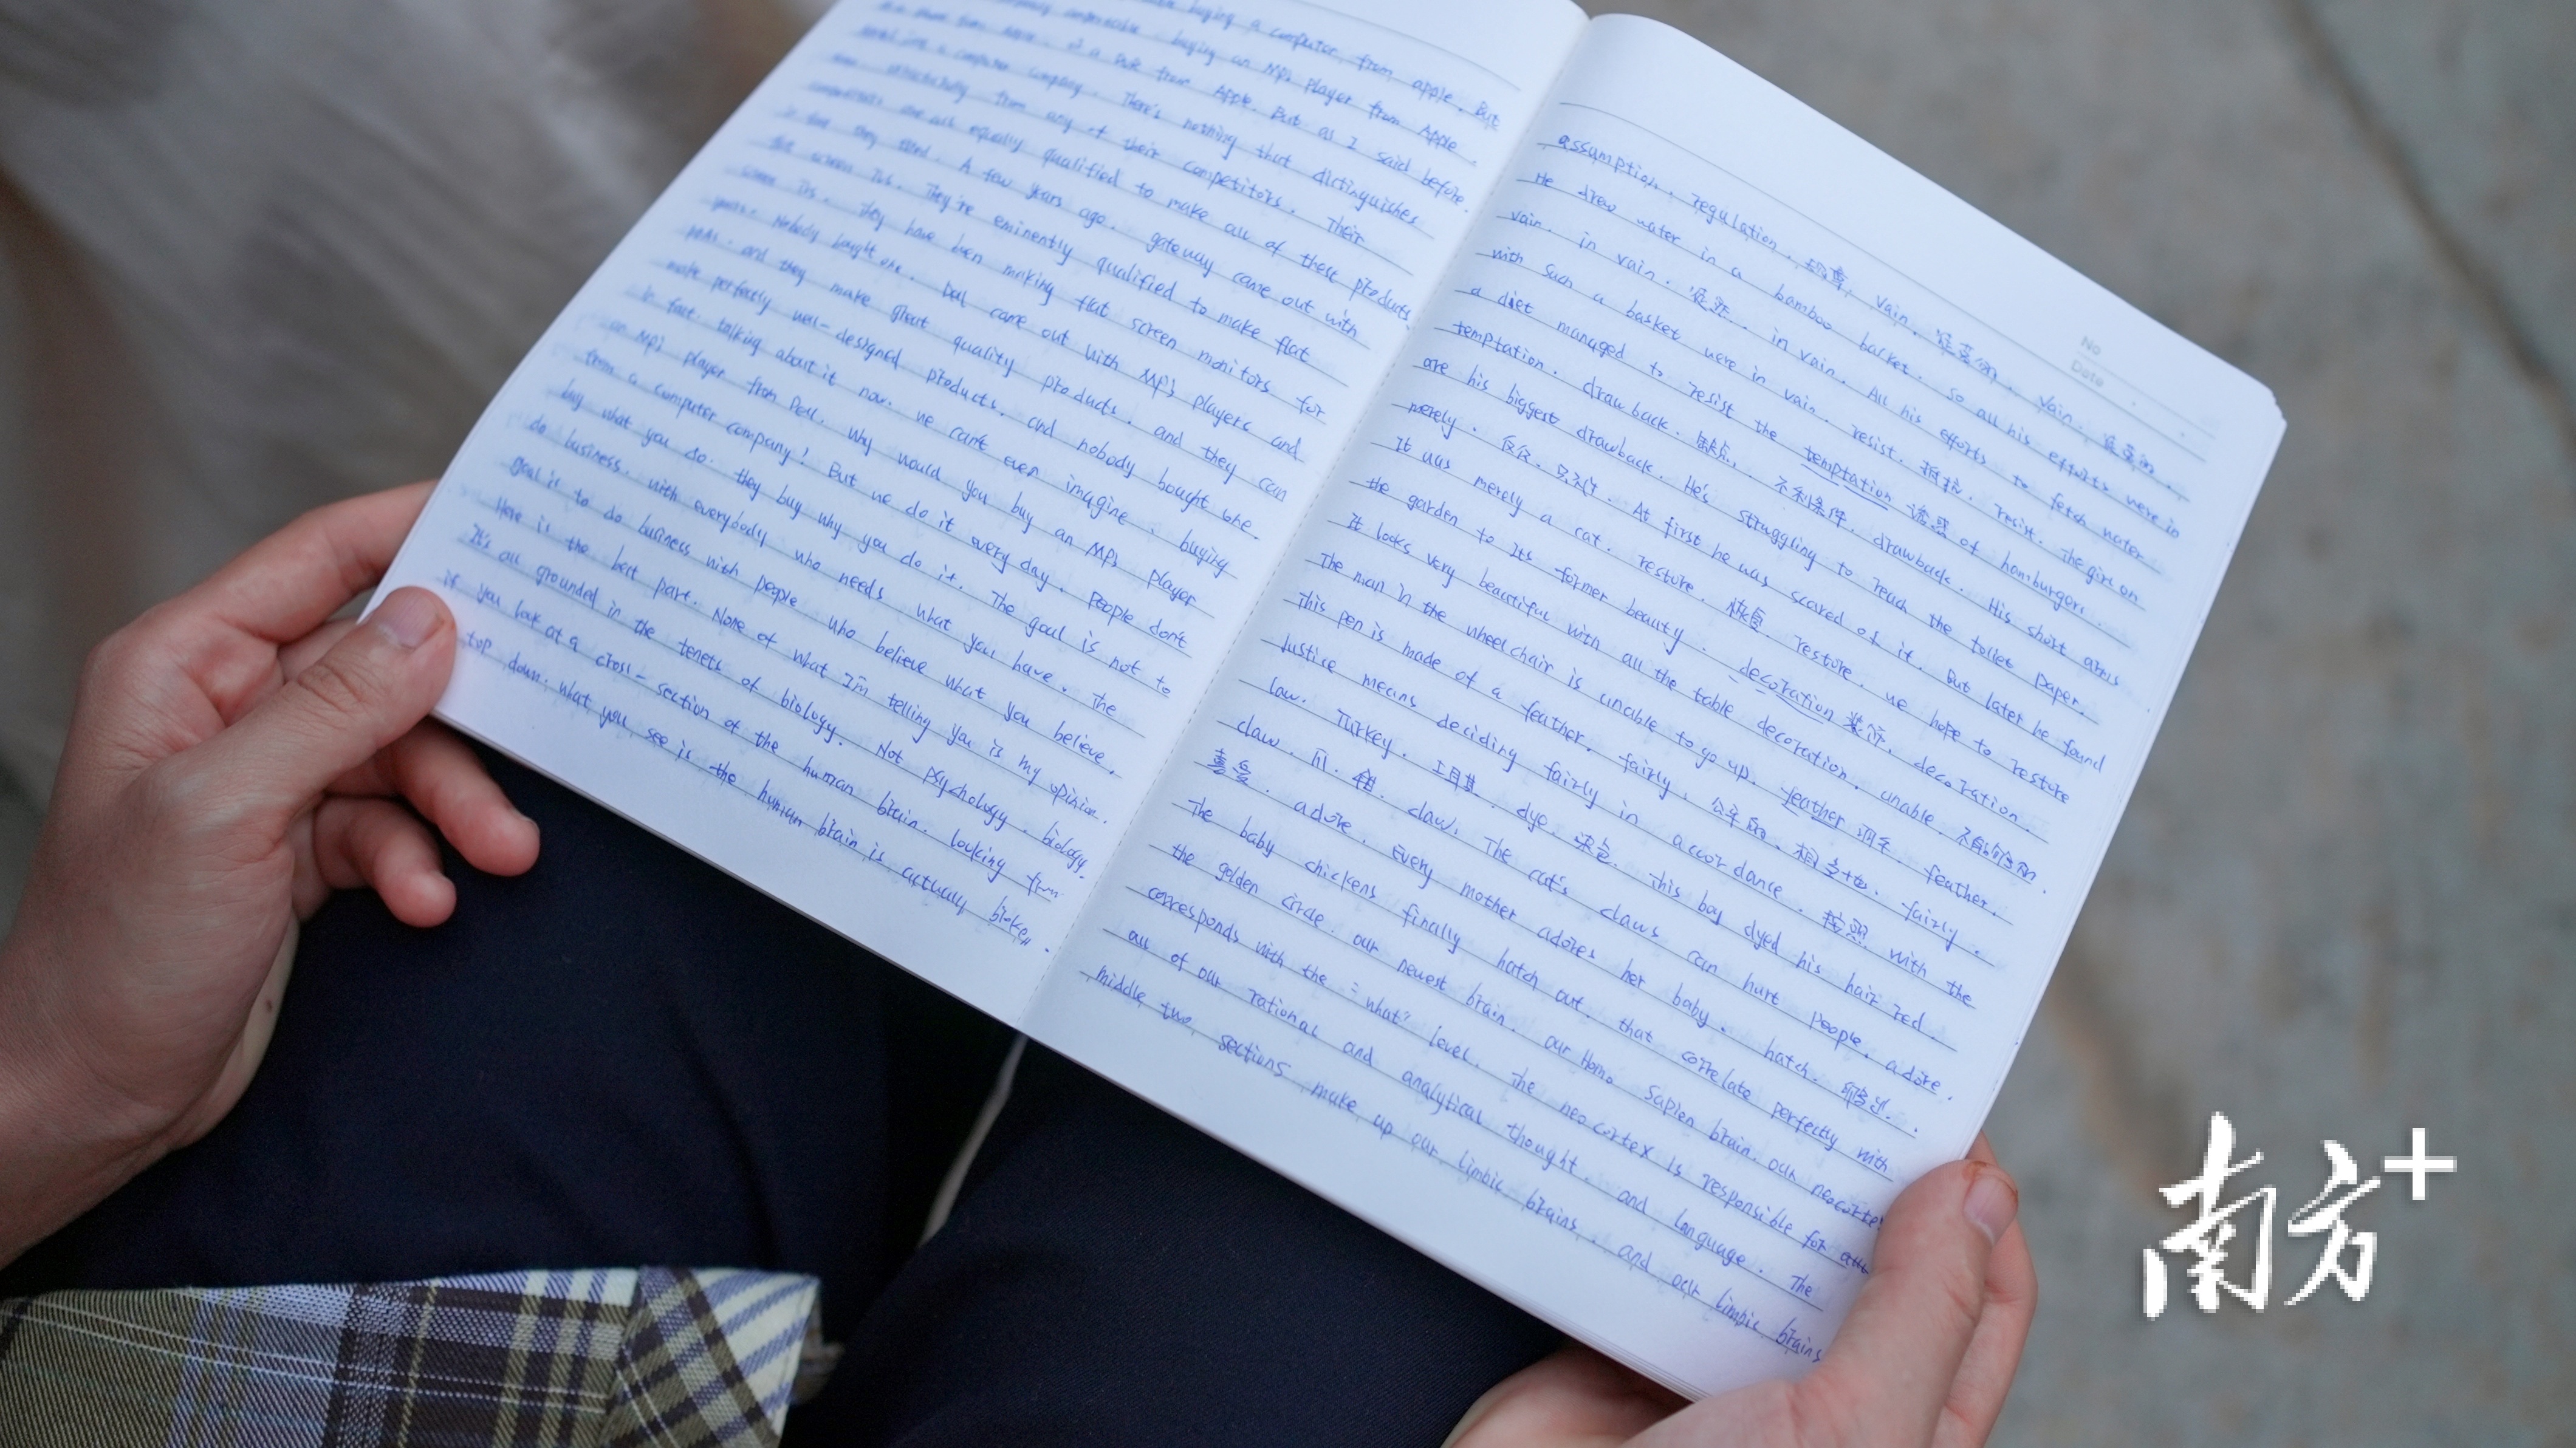 buying a computer from apple. But
buying an MP3 player from Apple.
or a DVR from Apple. But as I said before.
a computer company. There's nothing that distinguishes
from any of their competitors. Their
are all equally qualified to make all of these products.
they tried. A few years ago. gateway came out with
flat screen TVs. They're eminently qualified to make flat
screen TVs. they have been making flat screen monitors for
years. Nobody bought one. Dell came out with MP3 players and
PDAs. and they make great quality products. and they can
make perfectly well-designed products. and nobody bought one.
In fact. talking about it now. we can't even imagine. buying
an MP3 player from Dell. Why would you buy an MP3 player
from a computer company? But we do it every day. People don't
buy what you do. they buy why you do it. The goal is not to
do business. with everybody who needs what you have. The
goal is to do business with people who believe what you believe.
Here is the best part. None of what I'm telling you is my opinion.
It's all grounded in the tenets of biology. Not psychology. biology.
if you look at a cross-section of the human brain. looking from
top down. what you see is the human brain is actually broken
No
Date
assumption. regulation. vain. vain.
He drew water in a bamboo basket. So all his efforts were in
vain. in vain. in vain. All his efforts to fetch water
with such a basket were in vain. resist. 抵抗. resist. The girl on
a diet managed to resist the temptation 诱惑 of hamburgers.
temptation. drawback. 缺点. 不利条件. drawback. His short arms
are his biggest drawback. He's struggling to reach the toilet paper.
merely. 仅仅. 只不过. At first he was scared of it. But later he found
It was merely a cat. restore. 恢复. restore. we hope to restore
the garden to its former beauty. decoration 装饰. decoration.
It looks very beautiful with all the table decoration. unable.
The man in the wheelchair is unable to go up. feather 羽毛. feather.
This pen is made of a feather. fairly. 公平的. 相当地. fairly.
Justice means deciding fairly in accordance. 按照 with the
law. Turkey. dye. 染色. This boy dyed his hair red.
claw. 爪. 钳. claw. The cat's claws can hurt people. adore.
adore. Every mother adores her baby. hatch. 孵出.
The baby chickens finally hatch out. that correlate perfectly with
the golden circle. our newest brain. our Homo Sapien brain. our neocortex
corresponds with the "what" level. The neocortex is responsible for
all of our rational and analytical thought. and language. The
middle two sections make up our limbic brains. and our limbic brains
南方+